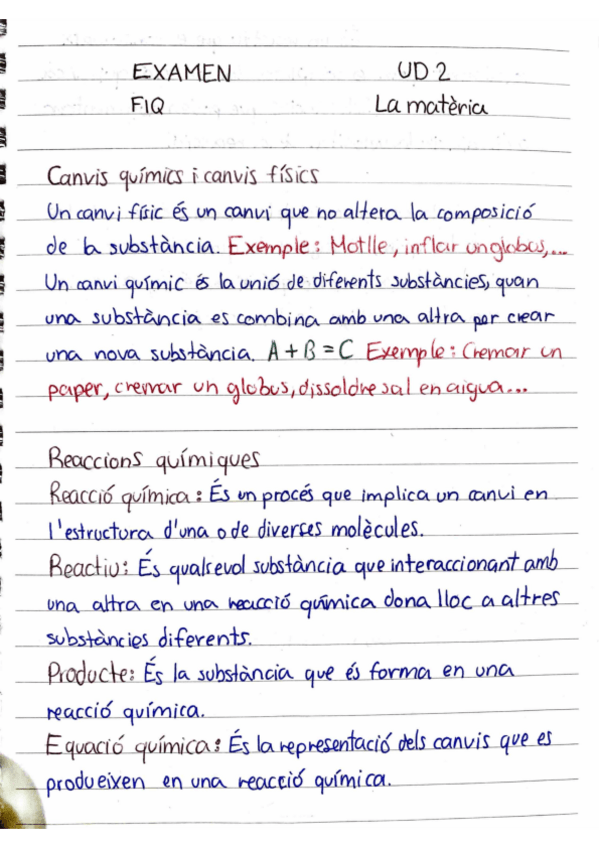 EXAMEN UD 2
FIQ La matèria
Canvis químics i canvis físics
Un canvi físic és un canvi que no altera la composició
de la substància. Exemple: Motlle, inflar un globus,...
Un canvi químic és la unió de diferents substàncies, quan
una substància es combina amb una altra per crear
una nova substància. A + B = C Exemple: Cremar un
paper, cremar un globus, dissoldre sal en aigua...
Reaccions químiques
Reacció química: És un procés que implica un canvi en
l'estructura d'una o de diverses molècules.
Reactiu: És qualsevol substància que interaccionant amb
una altra en una reacció química dona lloc a altres
substàncies diferents.
Producte: És la substància que és forma en una
reacció química.
Equació química: És la representació dels canvis que es
produeixen en una reacció química.